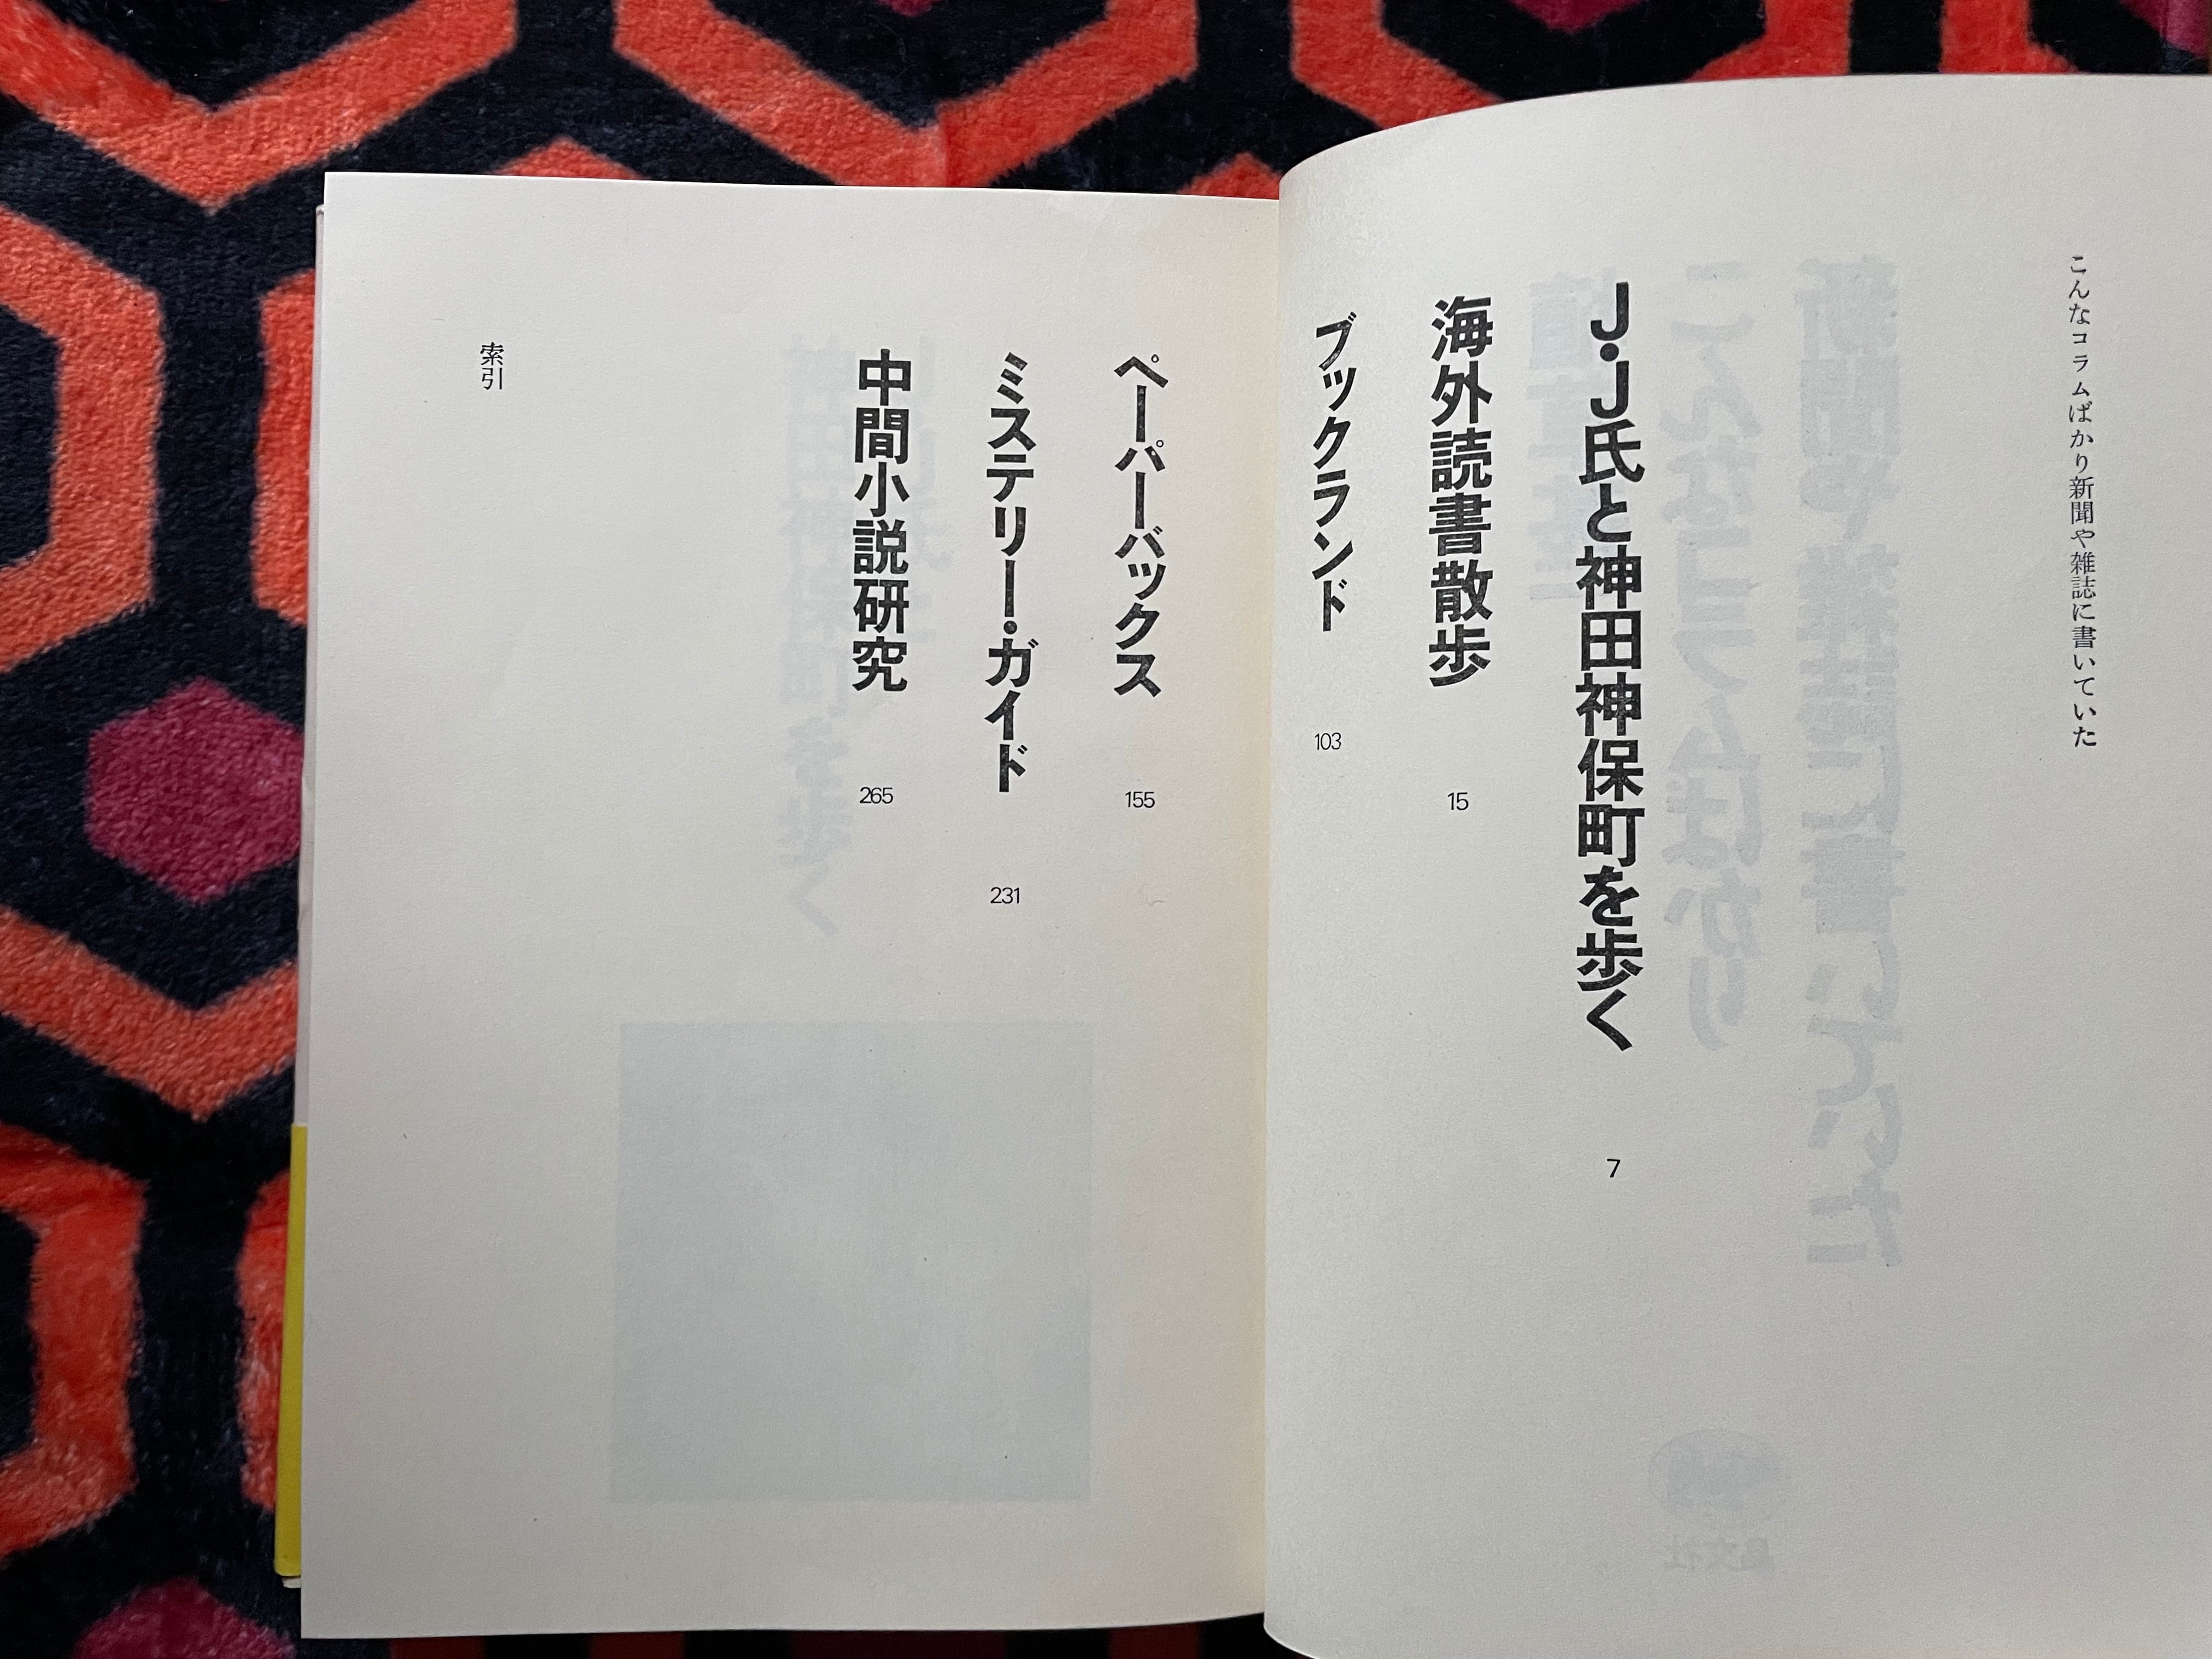 こんなコラムばかり新聞や雑誌に書いていた
J・J氏と神田神保町を歩く 7
海外読書散歩 15
ブックランド 103
ペーパーバックス 155
ミステリー・ガイド 231
中間小説研究 265
索引